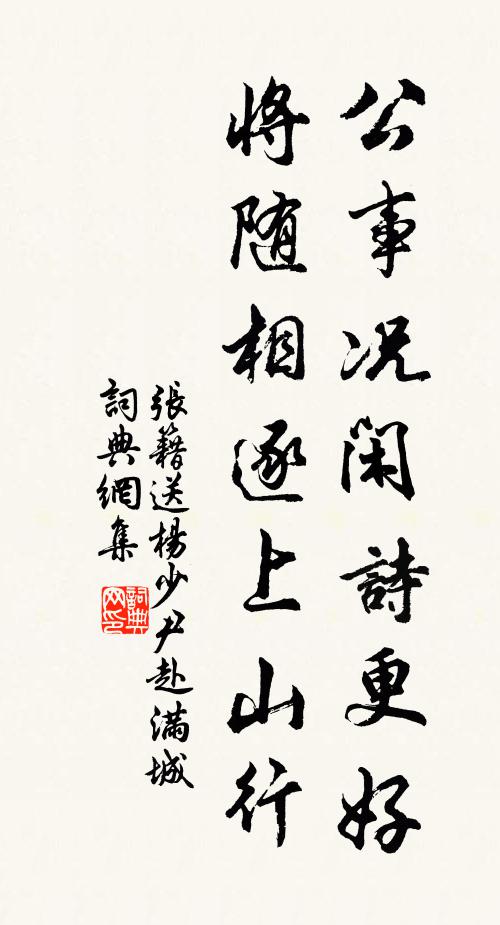 公事况闲詩更好
将随相逐上山行
張籍送楊少尹赴滿城
詞典網集
詞典网印